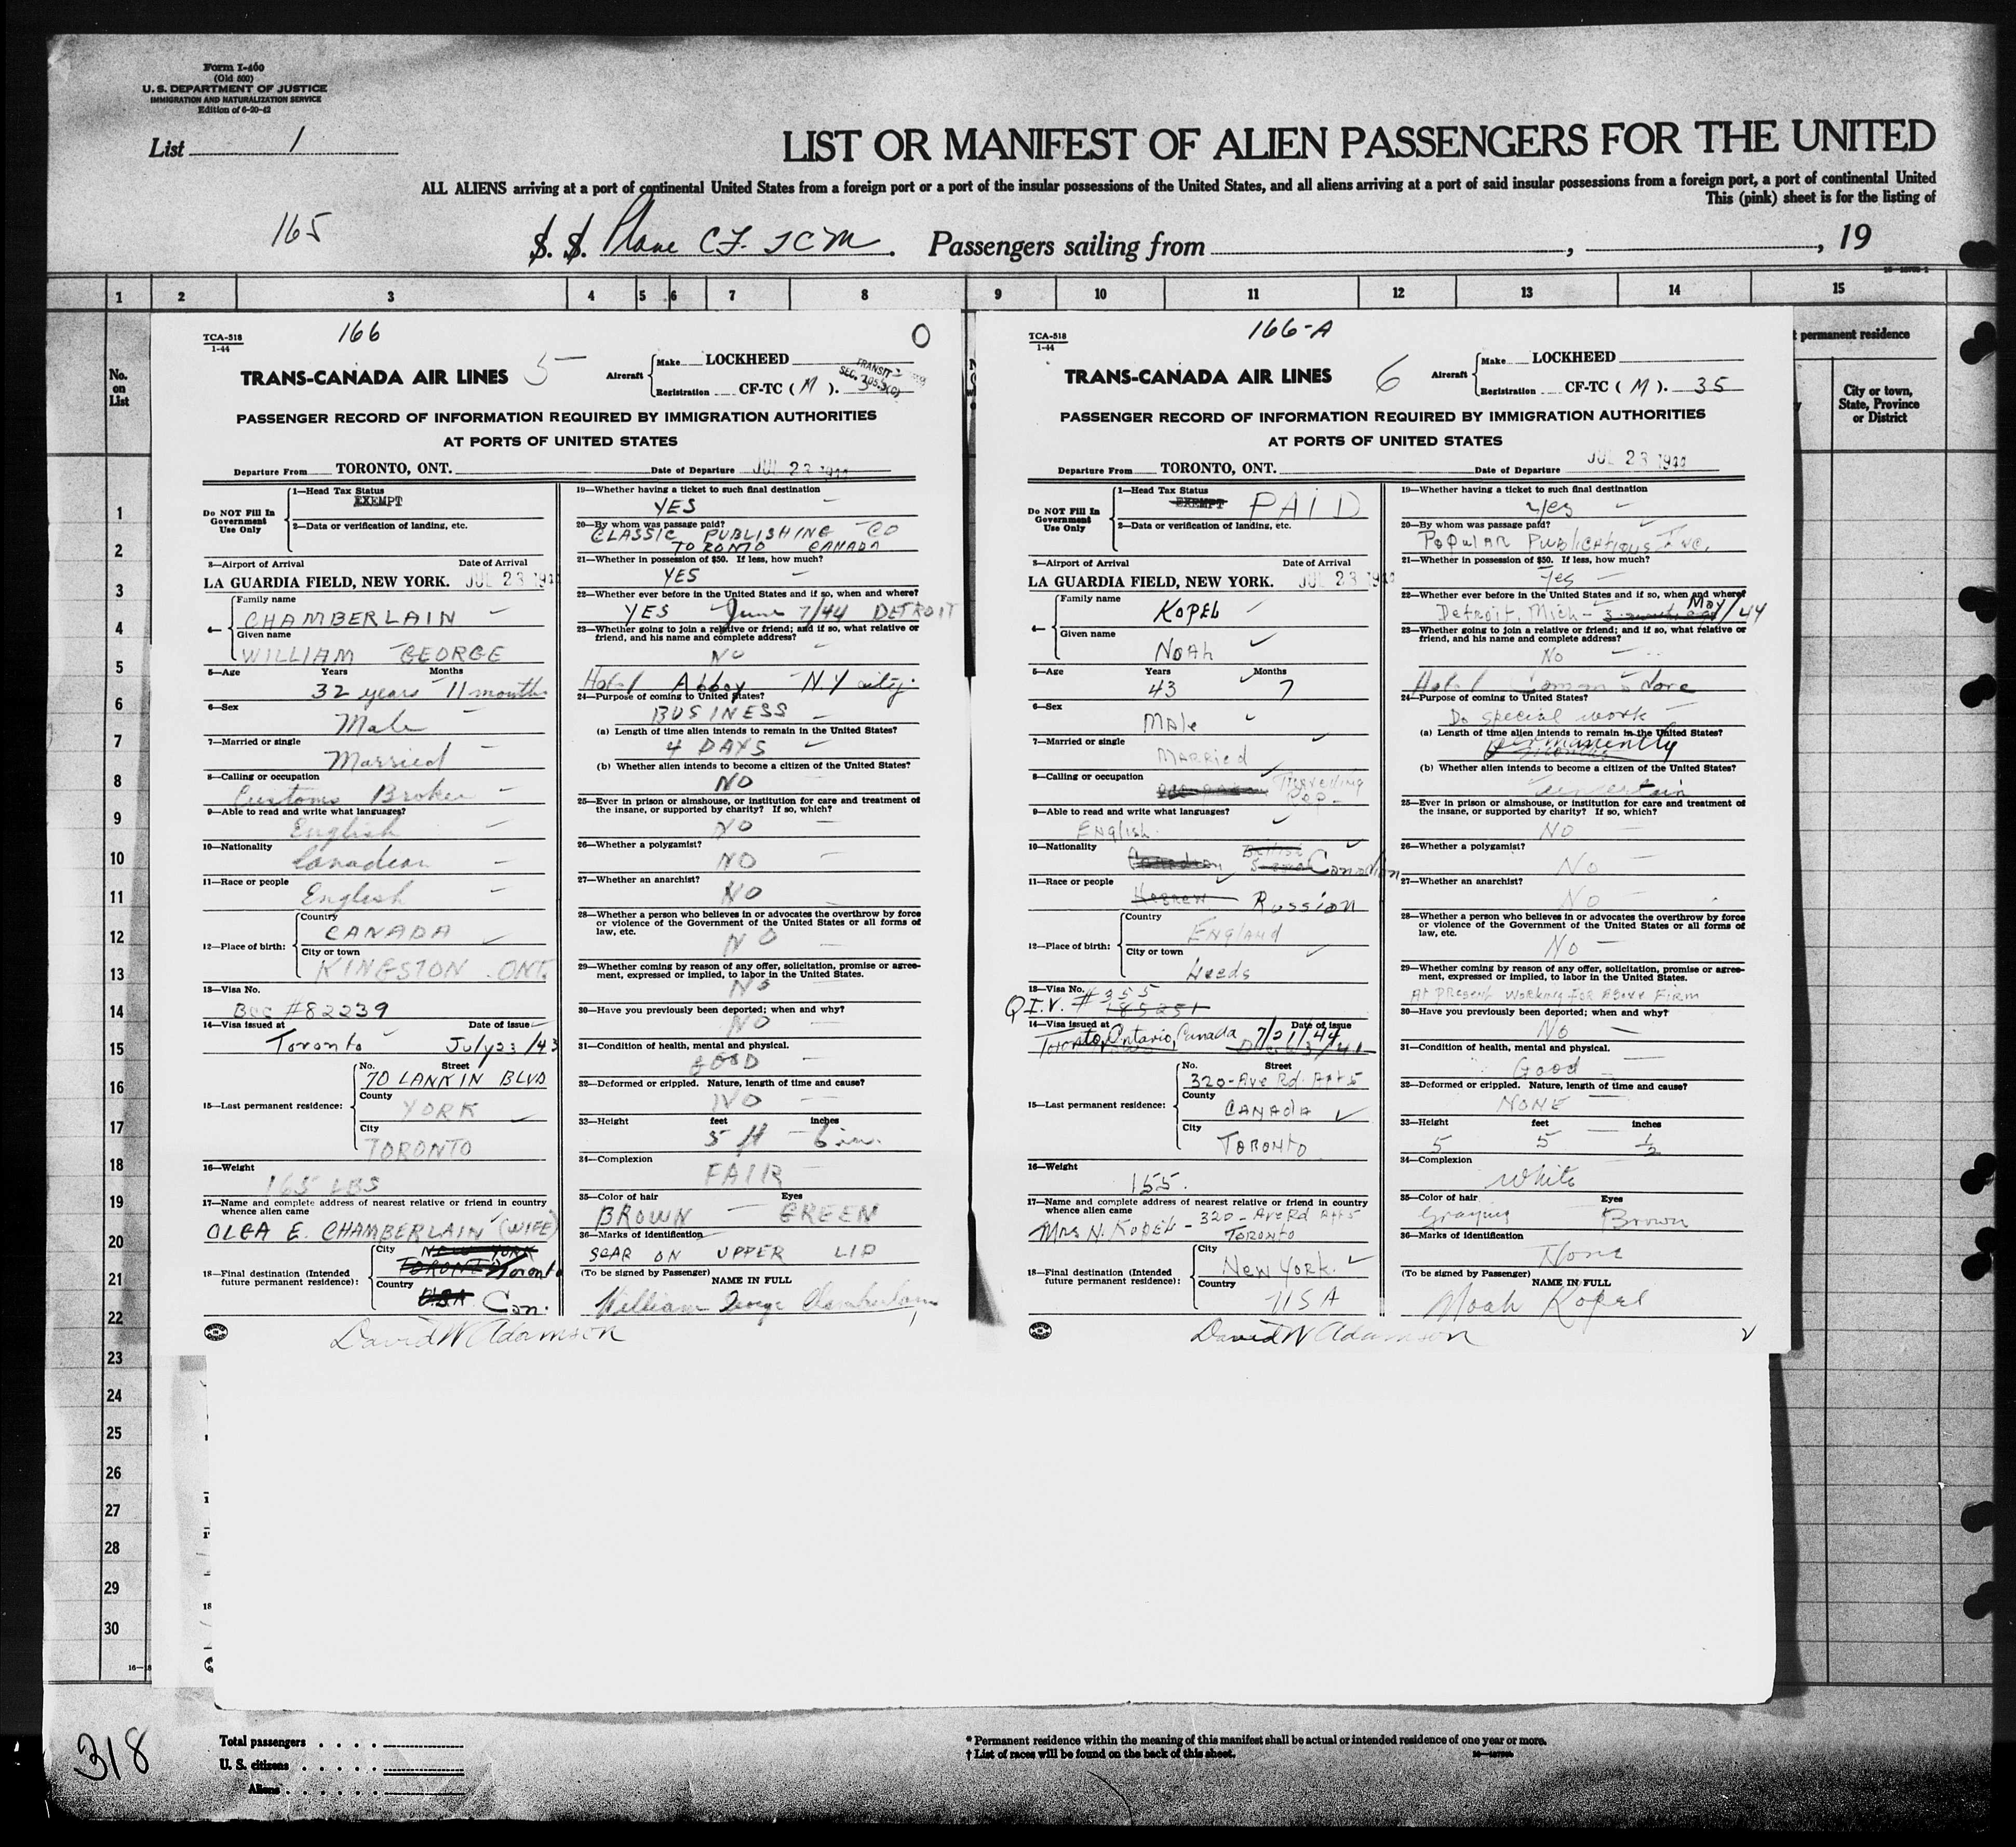 Form I-460
(Old 500)
U. S. DEPARTMENT OF JUSTICE
IMMIGRATION AND NATURALIZATION SERVICE
Edition of 6-20-42
List 1
LIST OR MANIFEST OF ALIEN PASSENGERS FOR THE UNITED
ALL ALIENS arriving at a port of continental United States from a foreign port or a port of the insular possessions of the United States, and all aliens arriving at a port of said insular possessions from a foreign port, a port of continental United
This (pink) sheet is for the listing of
165
S. S. Plane CF. TCM. Passengers sailing from , , 19
1 2 3 4 5 6 7 8 9 10 11 12 13 14 15
No. on List
t permanent residence
City or town, State, Province or District
TCA-518
1-44
166
O
TRANS-CANADA AIR LINES 5
Aircraft
Make LOCKHEED
Registration CF-TC ( M ).
TRANSIT
PASSENGER RECORD OF INFORMATION REQUIRED BY IMMIGRATION AUTHORITIES
AT PORTS OF UNITED STATES
Departure From TORONTO, ONT. Date of Departure JUL 23 1944
Do NOT Fill In Government Use Only
1—Head Tax Status
EXEMPT
2—Data or verification of landing, etc.
3—Airport of Arrival Date of Arrival
LA GUARDIA FIELD, NEW YORK. JUL 23 1944
4—
Family name
CHAMBERLAIN
Given name
WILLIAM GEORGE
5—Age Years Months
32 years 11 months
6—Sex
Male
7—Married or single
Married
8—Calling or occupation
Customs Broker
9—Able to read and write what languages?
English
10—Nationality
Canadian
11—Race or people
English
12—Place of birth:
Country
CANADA
City or town
KINGSTON ONT.
13—Visa No.
BCC #82239
14—Visa issued at Date of issue
Toronto July 23/43
15—Last permanent residence:
No. Street
70 LANKIN BLVD
County
YORK
City
TORONTO
16—Weight
165 LBS
17—Name and complete address of nearest relative or friend in country whence alien came
OLGA E. CHAMBERLAIN (WIFE)
18—Final destination (Intended future permanent residence):
City
NEW YORK
TORONTO Toronto
Country
USA Can.
19—Whether having a ticket to such final destination
YES
20—By whom was passage paid?
CLASSIC PUBLISHING CO
TORONTO CANADA
21—Whether in possession of $50. If less, how much?
YES
22—Whether ever before in the United States and if so, when and where?
YES June 7/44 DETROIT
23—Whether going to join a relative or friend; and if so, what relative or friend, and his name and complete address?
NO
Hotel Abbey N.Y city.
24—Purpose of coming to United States?
BUSINESS
(a) Length of time alien intends to remain in the United States?
4 DAYS
(b) Whether alien intends to become a citizen of the United States?
NO
25—Ever in prison or almshouse, or institution for care and treatment of the insane, or supported by charity? If so, which?
NO
26—Whether a polygamist?
NO
27—Whether an anarchist?
NO
28—Whether a person who believes in or advocates the overthrow by force or violence of the Government of the United States or all forms of law, etc.
NO
29—Whether coming by reason of any offer, solicitation, promise or agreement, expressed or implied, to labor in the United States.
NO
30—Have you previously been deported; when and why?
NO
31—Condition of health, mental and physical.
GOOD
32—Deformed or crippled. Nature, length of time and cause?
NO
33—Height feet inches
5 ft 6 in.
34—Complexion
FAIR
35—Color of hair Eyes
BROWN GREEN
36—Marks of identification
SCAR ON UPPER LIP
(To be signed by Passenger)
NAME IN FULL
William George Chamberlain
David W Adamson
TCA-518
1-44
166-A
TRANS-CANADA AIR LINES 6
Aircraft
Make LOCKHEED
Registration CF-TC ( M ). 35
PASSENGER RECORD OF INFORMATION REQUIRED BY IMMIGRATION AUTHORITIES
AT PORTS OF UNITED STATES
Departure From TORONTO, ONT. Date of Departure JUL 23 1944
Do NOT Fill In Government Use Only
1—Head Tax Status
EXEMPT PAID
2—Data or verification of landing, etc.
3—Airport of Arrival Date of Arrival
LA GUARDIA FIELD, NEW YORK. JUL 23 1944
4—
Family name
KOPEL
Given name
NOAH
5—Age Years Months
43 7
6—Sex
MAle
7—Married or single
MARRIED
8—Calling or occupation
Travelling Rep-
9—Able to read and write what languages?
ENGlish.
10—Nationality
Canadian British Canadian
11—Race or people
Hebrew Russian
12—Place of birth:
Country
ENGlaNd
City or town
Leeds
13—Visa No.
Q.I.V. #355
185251
14—Visa issued at Date of issue
Toronto, Ontario, Canada 7/21/44
15—Last permanent residence:
No. Street
320-Ave Rd. Apt 5
County
CANADA
City
TORONTO
16—Weight
155.
17—Name and complete address of nearest relative or friend in country whence alien came
Mrs N. KOPEL - 320 - Ave Rd Apt 5
TORONTO
18—Final destination (Intended future permanent residence):
City
New York.
Country
USA
19—Whether having a ticket to such final destination
Yes
20—By whom was passage paid?
Popular Publications Inc.
21—Whether in possession of $50. If less, how much?
Yes
22—Whether ever before in the United States and if so, when and where?
Detroit, Mich - May/44
23—Whether going to join a relative or friend; and if so, what relative or friend, and his name and complete address?
No
Hotel
24—Purpose of coming to United States?
Do special work
(a) Length of time alien intends to remain in the United States?
permanently
(b) Whether alien intends to become a citizen of the United States?
uncertain
25—Ever in prison or almshouse, or institution for care and treatment of the insane, or supported by charity? If so, which?
NO
26—Whether a polygamist?
No
27—Whether an anarchist?
No
28—Whether a person who believes in or advocates the overthrow by force or violence of the Government of the United States or all forms of law, etc.
No
29—Whether coming by reason of any offer, solicitation, promise or agreement, expressed or implied, to labor in the United States.
At Present Working For Above Firm
30—Have you previously been deported; when and why?
No
31—Condition of health, mental and physical.
Good
32—Deformed or crippled. Nature, length of time and cause?
NONE
33—Height feet inches
5 5 ½
34—Complexion
White
35—Color of hair Eyes
Graying Brown
36—Marks of identification
None
(To be signed by Passenger)
NAME IN FULL
Noah Kopel
David W Adamson
1
2
3
4
5
6
7
8
9
10
11
12
13
14
15
16
17
18
19
20
21
22
23
24
25
26
27
28
29
30
318
Total passengers
U. S. citizens
Aliens
* Permanent residence within the meaning of this manifest shall be actual or intended residence of one year or more.
† List of races will be found on the back of this sheet.